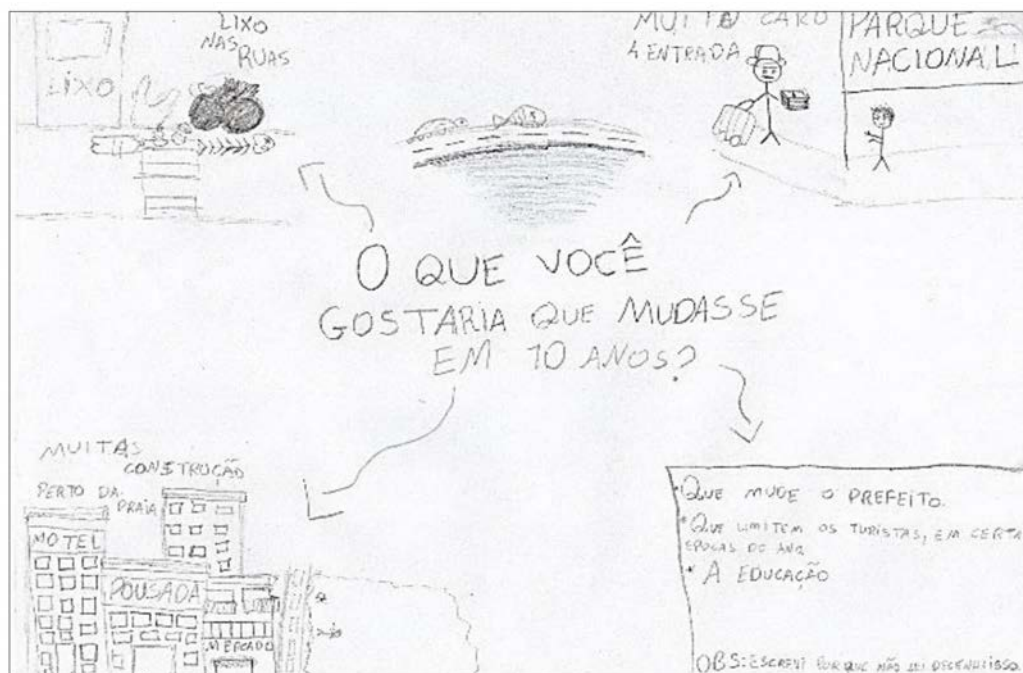 LIXO
NAS
RUAS
LIXO
MUITO CARO
A ENTRADA
PARQUE
NACIONAL
O QUE VOCÊ
GOSTARIA QUE MUDASSE
EM 10 ANOS?
MUITAS
CONSTRUCÃO
PERTO DA
PRAIA
MOTEL
POUSADA
MERCADO
• QUE MUDE O PREFEITO.
• QUE LIMITEM OS TURISTAS, EM CERTA
EPOCAS DO ANO
• A EDUCAÇÃO
OBS: ESCREVI PORQUE NÃO SEI DESENHA ISSO.